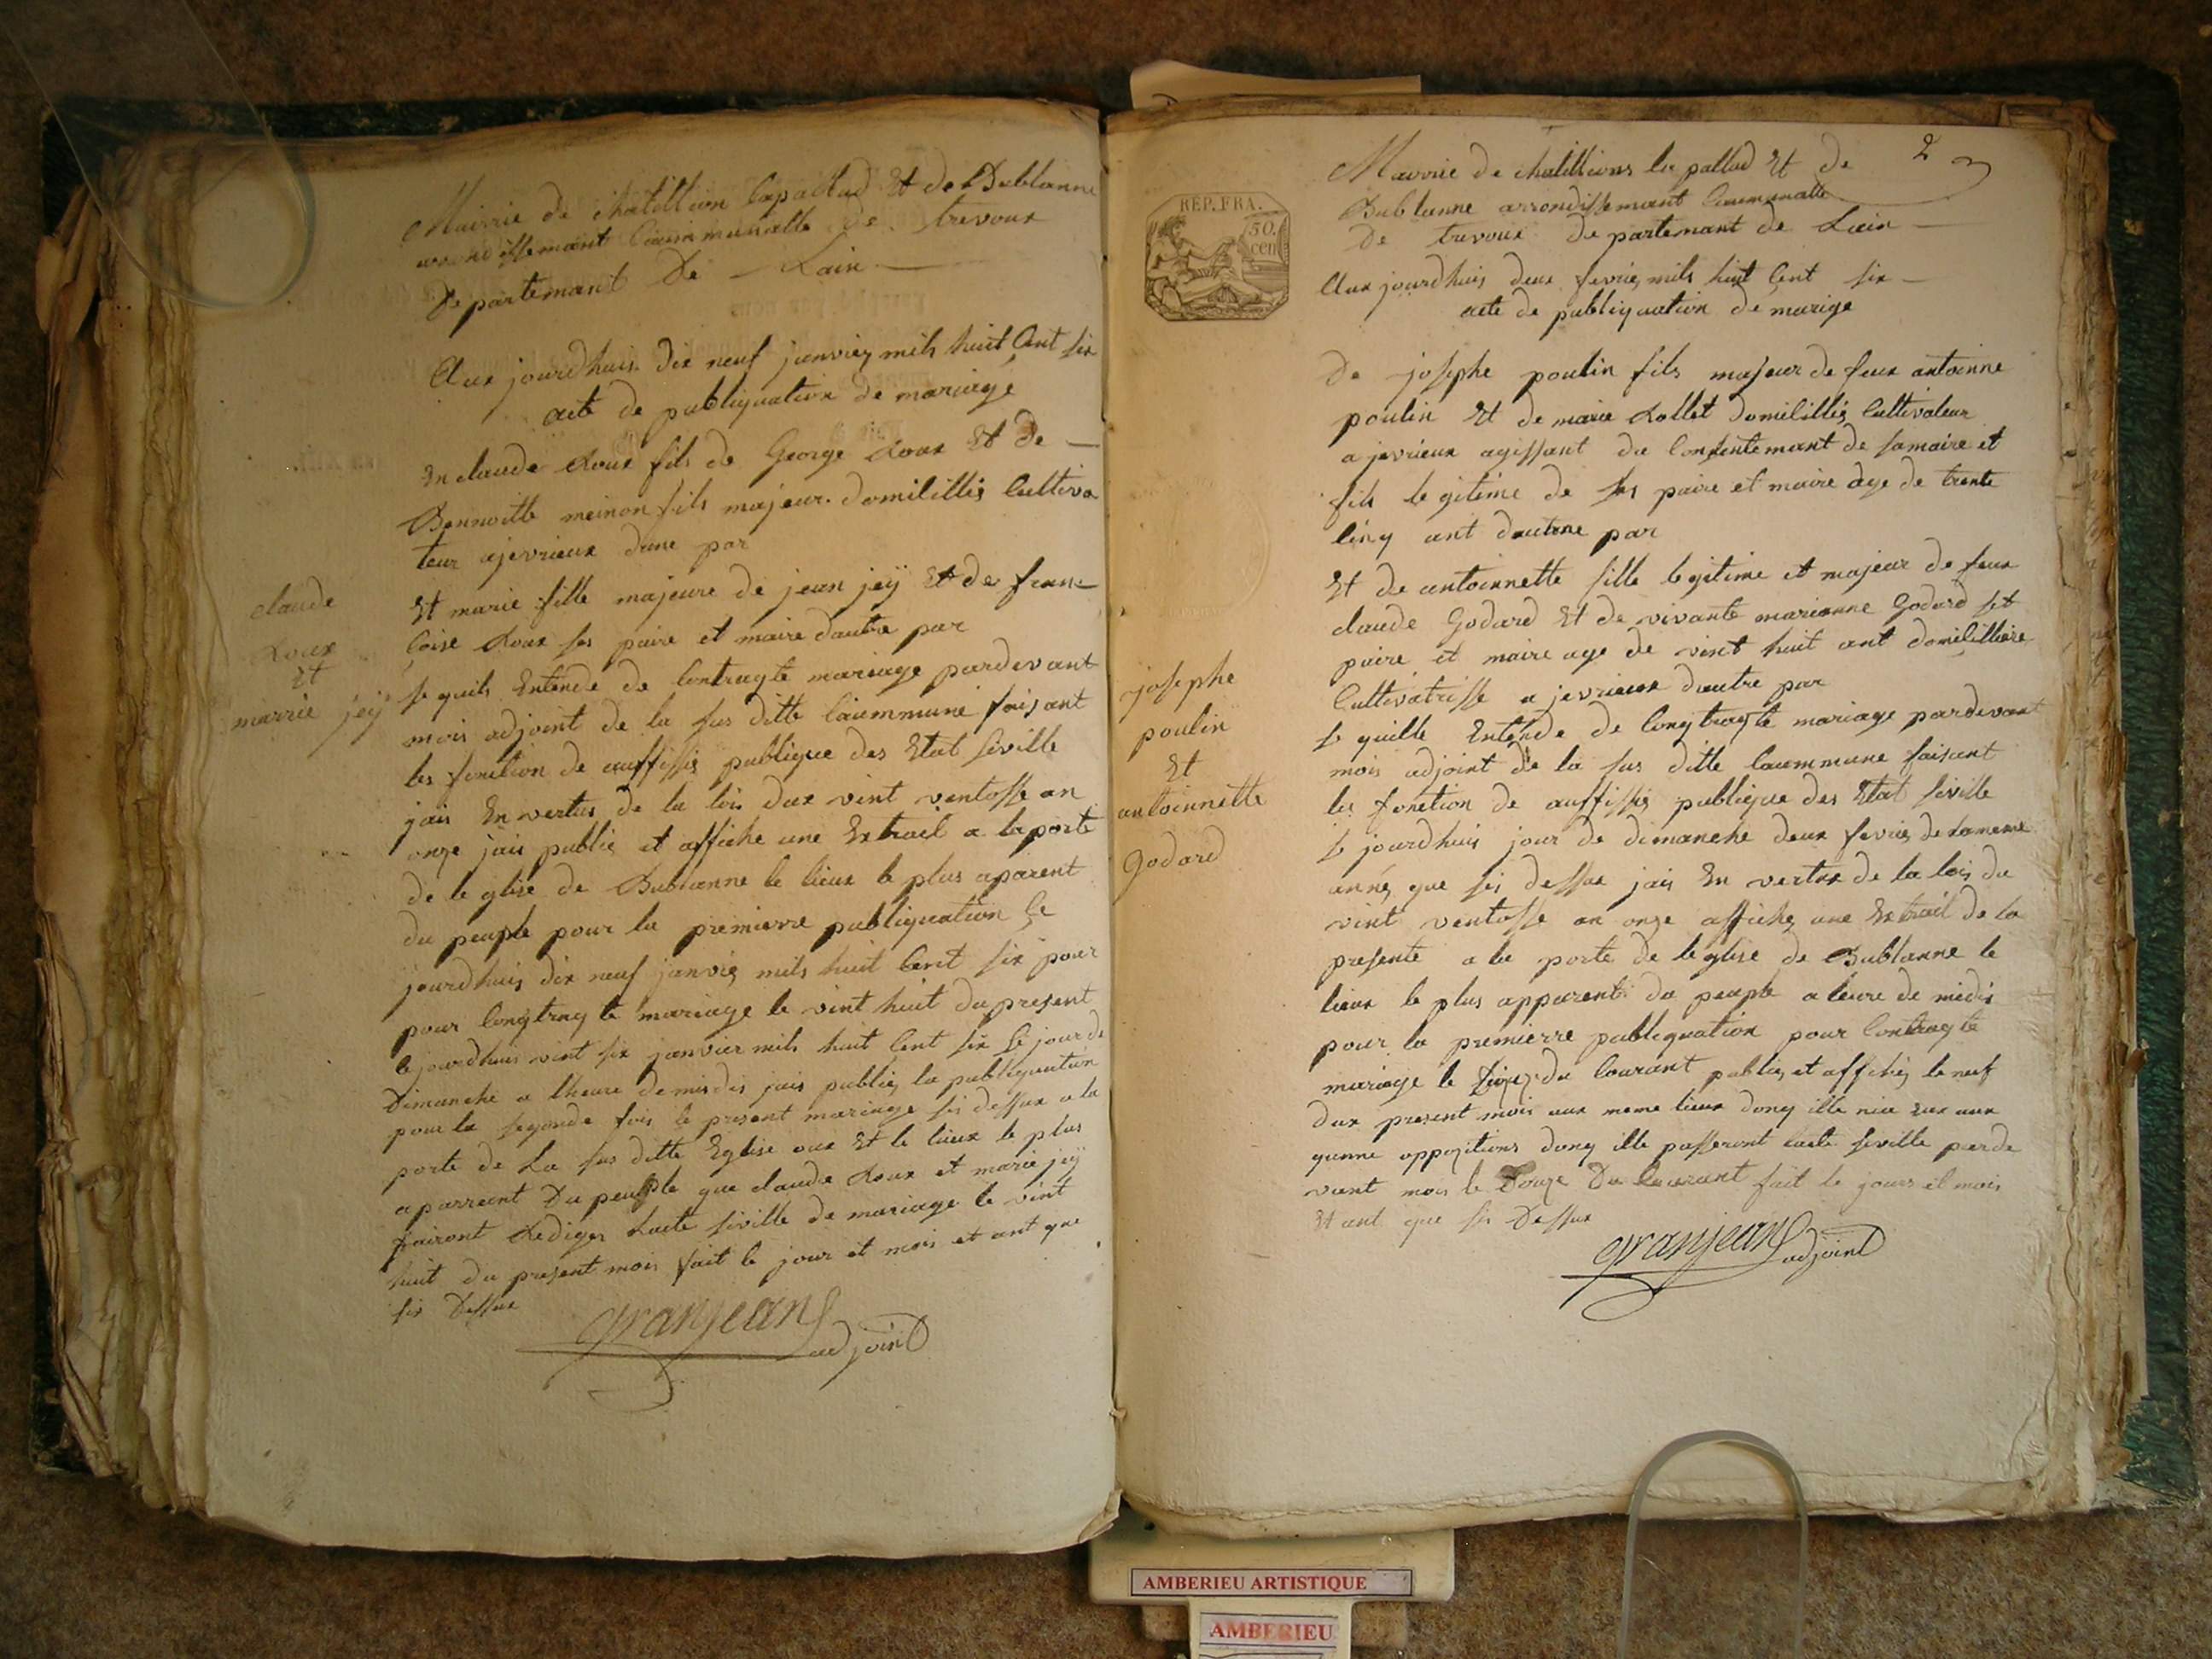 Mairrie de chatillion lapallud Et de Bublanne
arrondissemant Caummunalle de trevoux
Departemant De Lain
Aux jourdhuis dix neuf janvier mils huit Cent six
acte de publiquation de mariage
En claude Roux fils de George Roux Et de
Bennoitte meinon fils majeur domicillié Cultiva
teur ajevrieux dune par
Et marie fille majeure de jean jeÿ Et de fran
coise Roux ses paire et maire dautre par
se quils Entende de Contragté mariage pardevant
mois adjoint de la sus ditte Caummune faisant
les fonction de auffissié publique des Etat siville
jais En vertus de la lois dux vint ventosse an
onze jais publié et affiché une Extrail a la porte
de leglise de Bublanne le lieux le plus aparent
du peuple pour la premierre publiquation Ce
jourdhuis dix neuf janvié mils huit Cent six pour
pour Congtragté mariage le vint huit du present
Cejourdhuis vint six janvier mils huit Cent six Cé jour de
Dimanche a lheure de midis jais publié la publiquation
pour la segonde fois le present mariage sis dessux a la
porte de La sus ditte Eglise oux Et le lieux le plus
aparrant Du peuple que claude Roux et marie jeÿ
fairont Rediger Lacte siville de mariage le vint
huit du present mois fait le jour et mois et ant que
sis Dessux
granjean
adjoint
claude
Roux
Et
marrie jeÿ
2
Mairrie de chatillions la pallud Et de
Bublanne arrondissemant Caummunalle
De trevoux departemant de Lain
REP. FRA.
50.
cen
Aux jourdhuis deux fevrié mils huit Cent six
acte de publiquation de mariage
De josephe poulin fils majeur de feux antoinne
poulin Et de marie Rollet domicillié Cultivateur
a jevrieux agissant du Consentemant de samaire et
fils legitime de ses paire et maire age de trente
cinq ant dautrne par
Et de antoinnette fille legitime et majeur de feux
claude Godard Et de vivante marianne Godard set
paire et maire age de vint huit ant domicilliere
Cultivatrisse a jevrieux dautre par
se quille Entende de Congtragté mariage pardevant
mois adjoint de la sus ditte Caummune faisant
les fonction de auffissié publique des Etat siville
se jourdhuis jour de dimanche deux fevrié de lameme
anné que sis dessux jais En vertux de la lois du
vint ventosse an onze affiché une Extrail de la
presente a la porte de leglise de Bublanne le
lieux le plus apparent du peuple a leure de midis
pour la premierre publiquation pour Contragté
mariage le du Courant publié et affiché le neuf
dux present mois aux meme lieux donq ille niea eux aux
qunne oppozitions donq ille passeront lacte siville parde
vant mois le Douze Du Courant fait le jours et mois
Et ant que sis Dessux
granjean
adjoint
josephe
poulin
Et
antoinnette
godard
AMBERIEU ARTISTIQUE
AMBERIEU